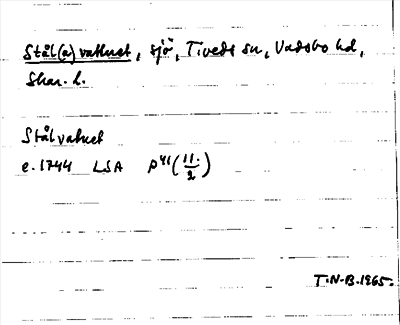 Stål(a)vattnet, sjö, Tiveds sn, Vadsbo hd,
Skar. l.
Stålvatnet
e. 1744 LSA P41 (11/2)
T.N-B. 1965.